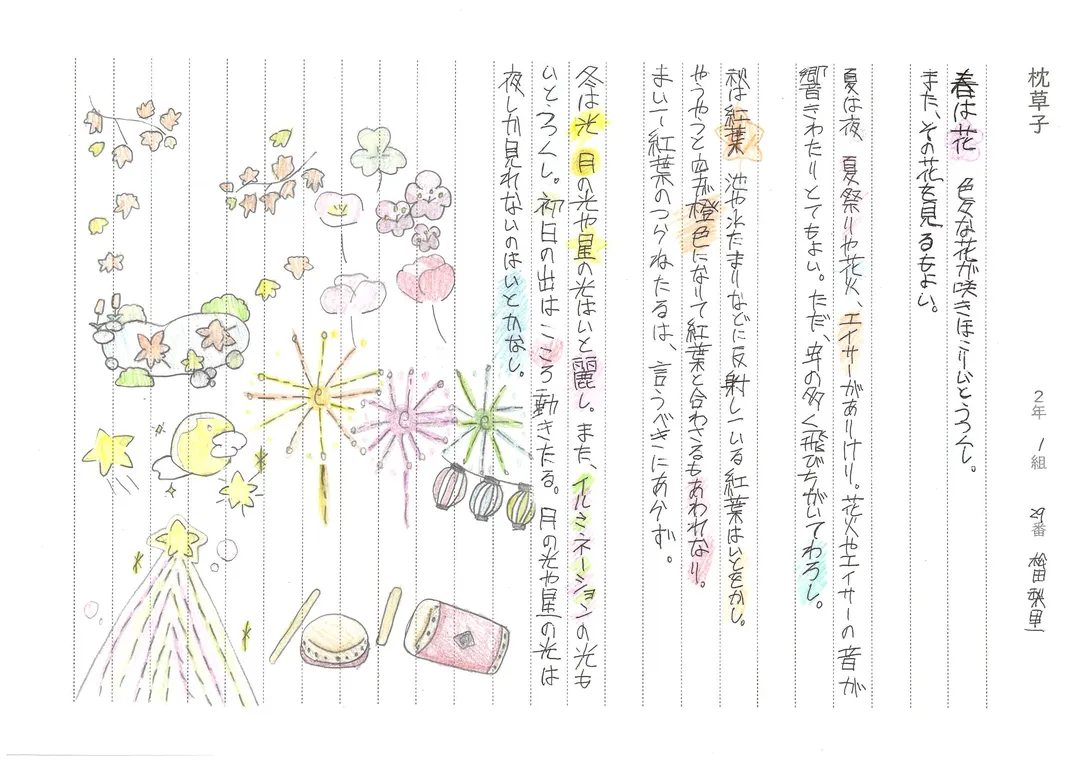 枕草子 2年 1組 29番
春は花 色々な花が咲きほこりいとうつくし。
また、その花を見るもよい。
夏は夜 夏祭りや花火、エイサーがありけり。花火やエイサーの音が
響きわたりとてもよい。ただ、虫の多く飛びちがいてわろし。
秋は紅葉 池や水たまりなどに反射している紅葉はいとをかし。
やうやうと空が橙色になりて紅葉と合わさるもあわれなり。
まいて紅葉のつらねたるは、言うべきにあらず。
冬は光 月の光や星の光はいと麗し。また、イルミネーションの光も
いとうつくし。初日の出はこころ動きたる。月の光や星の光は
夜しか見れないのはいとかなし。